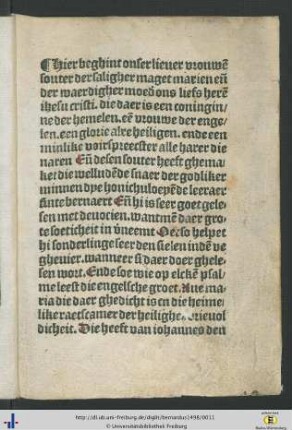 ¶ Hier beghint onser lieuer vrouwē
souter der saligher maget marien eñ
der waerdigher moed ons liefs herē
ihesu cristi. die daer is een coningin/
ne der hemelen. eē vrouwe der enge/
len. een glorie alre heiligen. ende een
minlike voirspreecster alle harer die
naren Eñ desen souter heeft ghema/
ket die welludēde snaer der godliker
minnen dye honichuloeyēde leeraer
sinte bernaert Eñ hi is seer goet gelesen
sen met deuocien. wantmē daer gro/
te soeticheit in vineemt Oec so helpet
hi sonderlinge seer den sielen indē ve
gheuier. wanneer si daer doer ghele/
sen wort. Ende soe wie op elckē psal/
me leest die engelsche groet. Aue ma/
ria die daer ghedicht is en die heime/
like raetscamer der heiligher drieuol
dicheit. Die heeft van iohannes den
http://dl.ub.uni-freiburg.de/diglit/bernardus1498/0011
© Universitätsbibliothek Freiburg